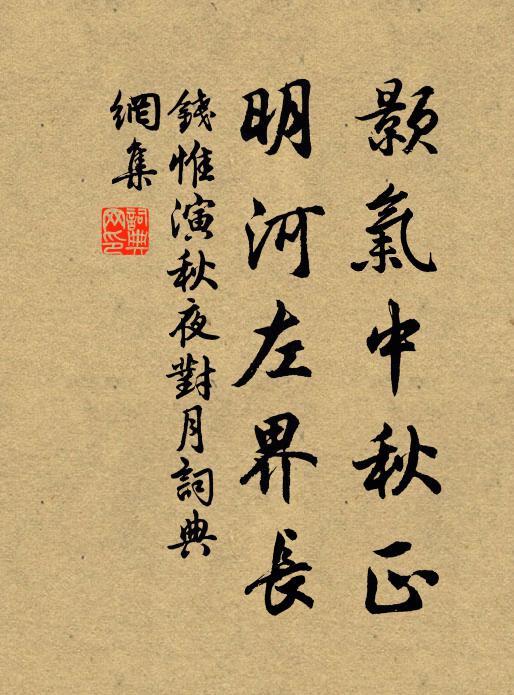 顥氣中秋正
明河左界長
錢惟演秋夜對月詞典
網集
詞典
网印